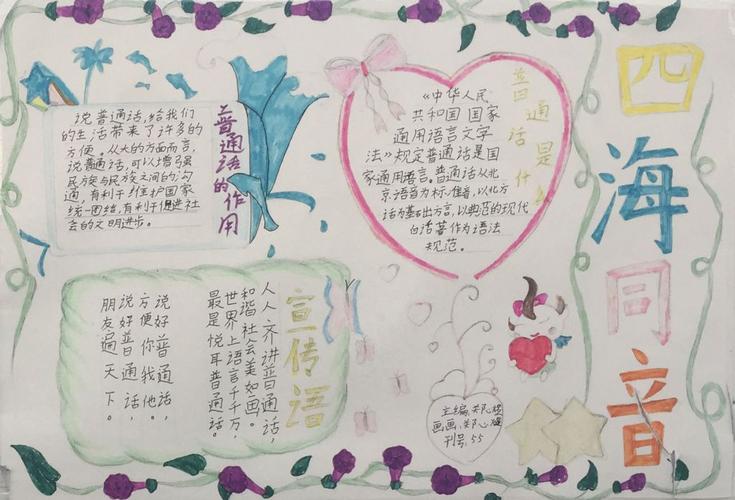 四海同音
普通话的作用
说普通话,给我们
的生活带来了许多的
方便。从大的方面而言,
说普通话,可以增强
民族与民族之间的沟
通,有利于维护国家
统一团结,有利于促进社
会的文明进步。
普通话是什么
《中华人民
共和国国家
通用语言文字
法》规定普通话是国
家通用语言,普通话从北
京语音为标准音,以北方
话为基础出方言,以典范的现代
白话著作为语法
规范。
宣传语
人人齐讲普通话,
和谐社会美如画。
世界上语言千千万,
最是悦耳普通话。
说好普通话,
方便你我他。
说好普通话,
朋友遍天下。
主编,郑心
画画,郑心
刊号,55